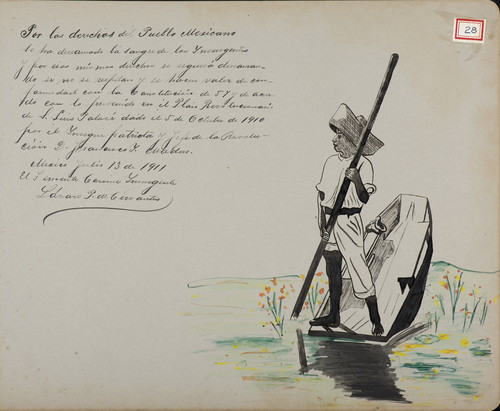 28
Por los derechos del Pueblo Mexicano
se ha derramado la sangre de los Insurgentes
y por esos mismos derechos se seguirá derraman-
do si no se respetan y se hacen valer de con-
formidad con la Constitución de 57 y de acuer-
do con lo prevenido en el Plan Revolucionario
de S. Luis Potosí dado el 5 de Octubre de 1910
por el Insigne patriota y Jefe de la Revolu-
ción D. Francisco I. Madero.
Mexico Julio 13 de 1911
El Teniente Coronel Insurgente
P. de Cervantes